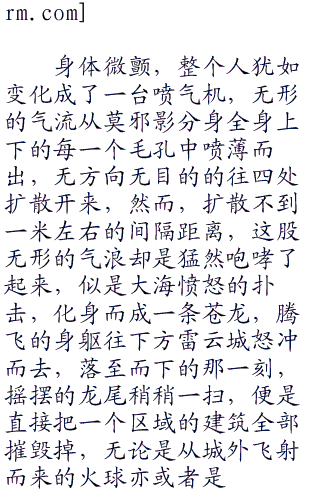 rm.com]
身体微颤，整个人犹如
变化成了一台喷气机，无形
的气流从莫邪影分身全身上
下的每一个毛孔中喷薄而
出，无方向无目的的往四处
扩散开来，然而，扩散不到
一米左右的间隔距离，这股
无形的气浪却是猛然咆哮了
起来，似是大海愤怒的扑
击，化身而成一条苍龙，腾
飞的身躯往下方雷云城怒冲
而去，落至而下的那一刻，
摇摆的龙尾稍稍一扫，便是
直接把一个区域的建筑全部
摧毁掉，无论是从城外飞射
而来的火球亦或者是